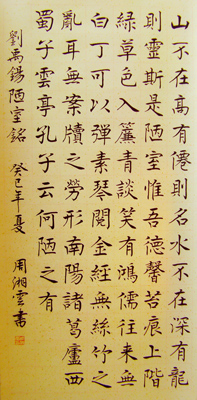 山不在高有僊則名水不在深有龍
則靈斯是陋室惟吾德馨苔痕上階
綠草色入簾青談笑有鴻儒往来無
白丁可以彈素琴閱金經無絲竹之
亂耳無案牘之勞形南陽諸葛廬西
蜀子雲亭孔子云何陋之有
劉禹錫陋室銘 癸巳年夏 周湘雲書